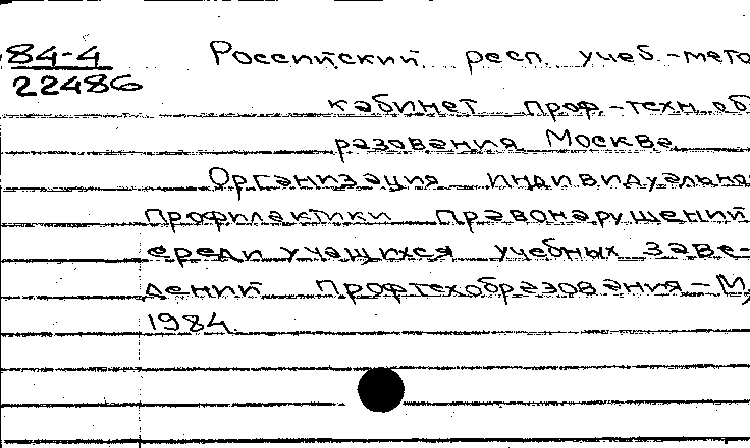 84-4 Российский респ. учеб.-мето
22486
кабинет проф-техн.об
разования Москва
Организация индивидуально
профилактики правонарушений
среди учащихся учебных заве-
дений Профтехобразования-М,
1984.